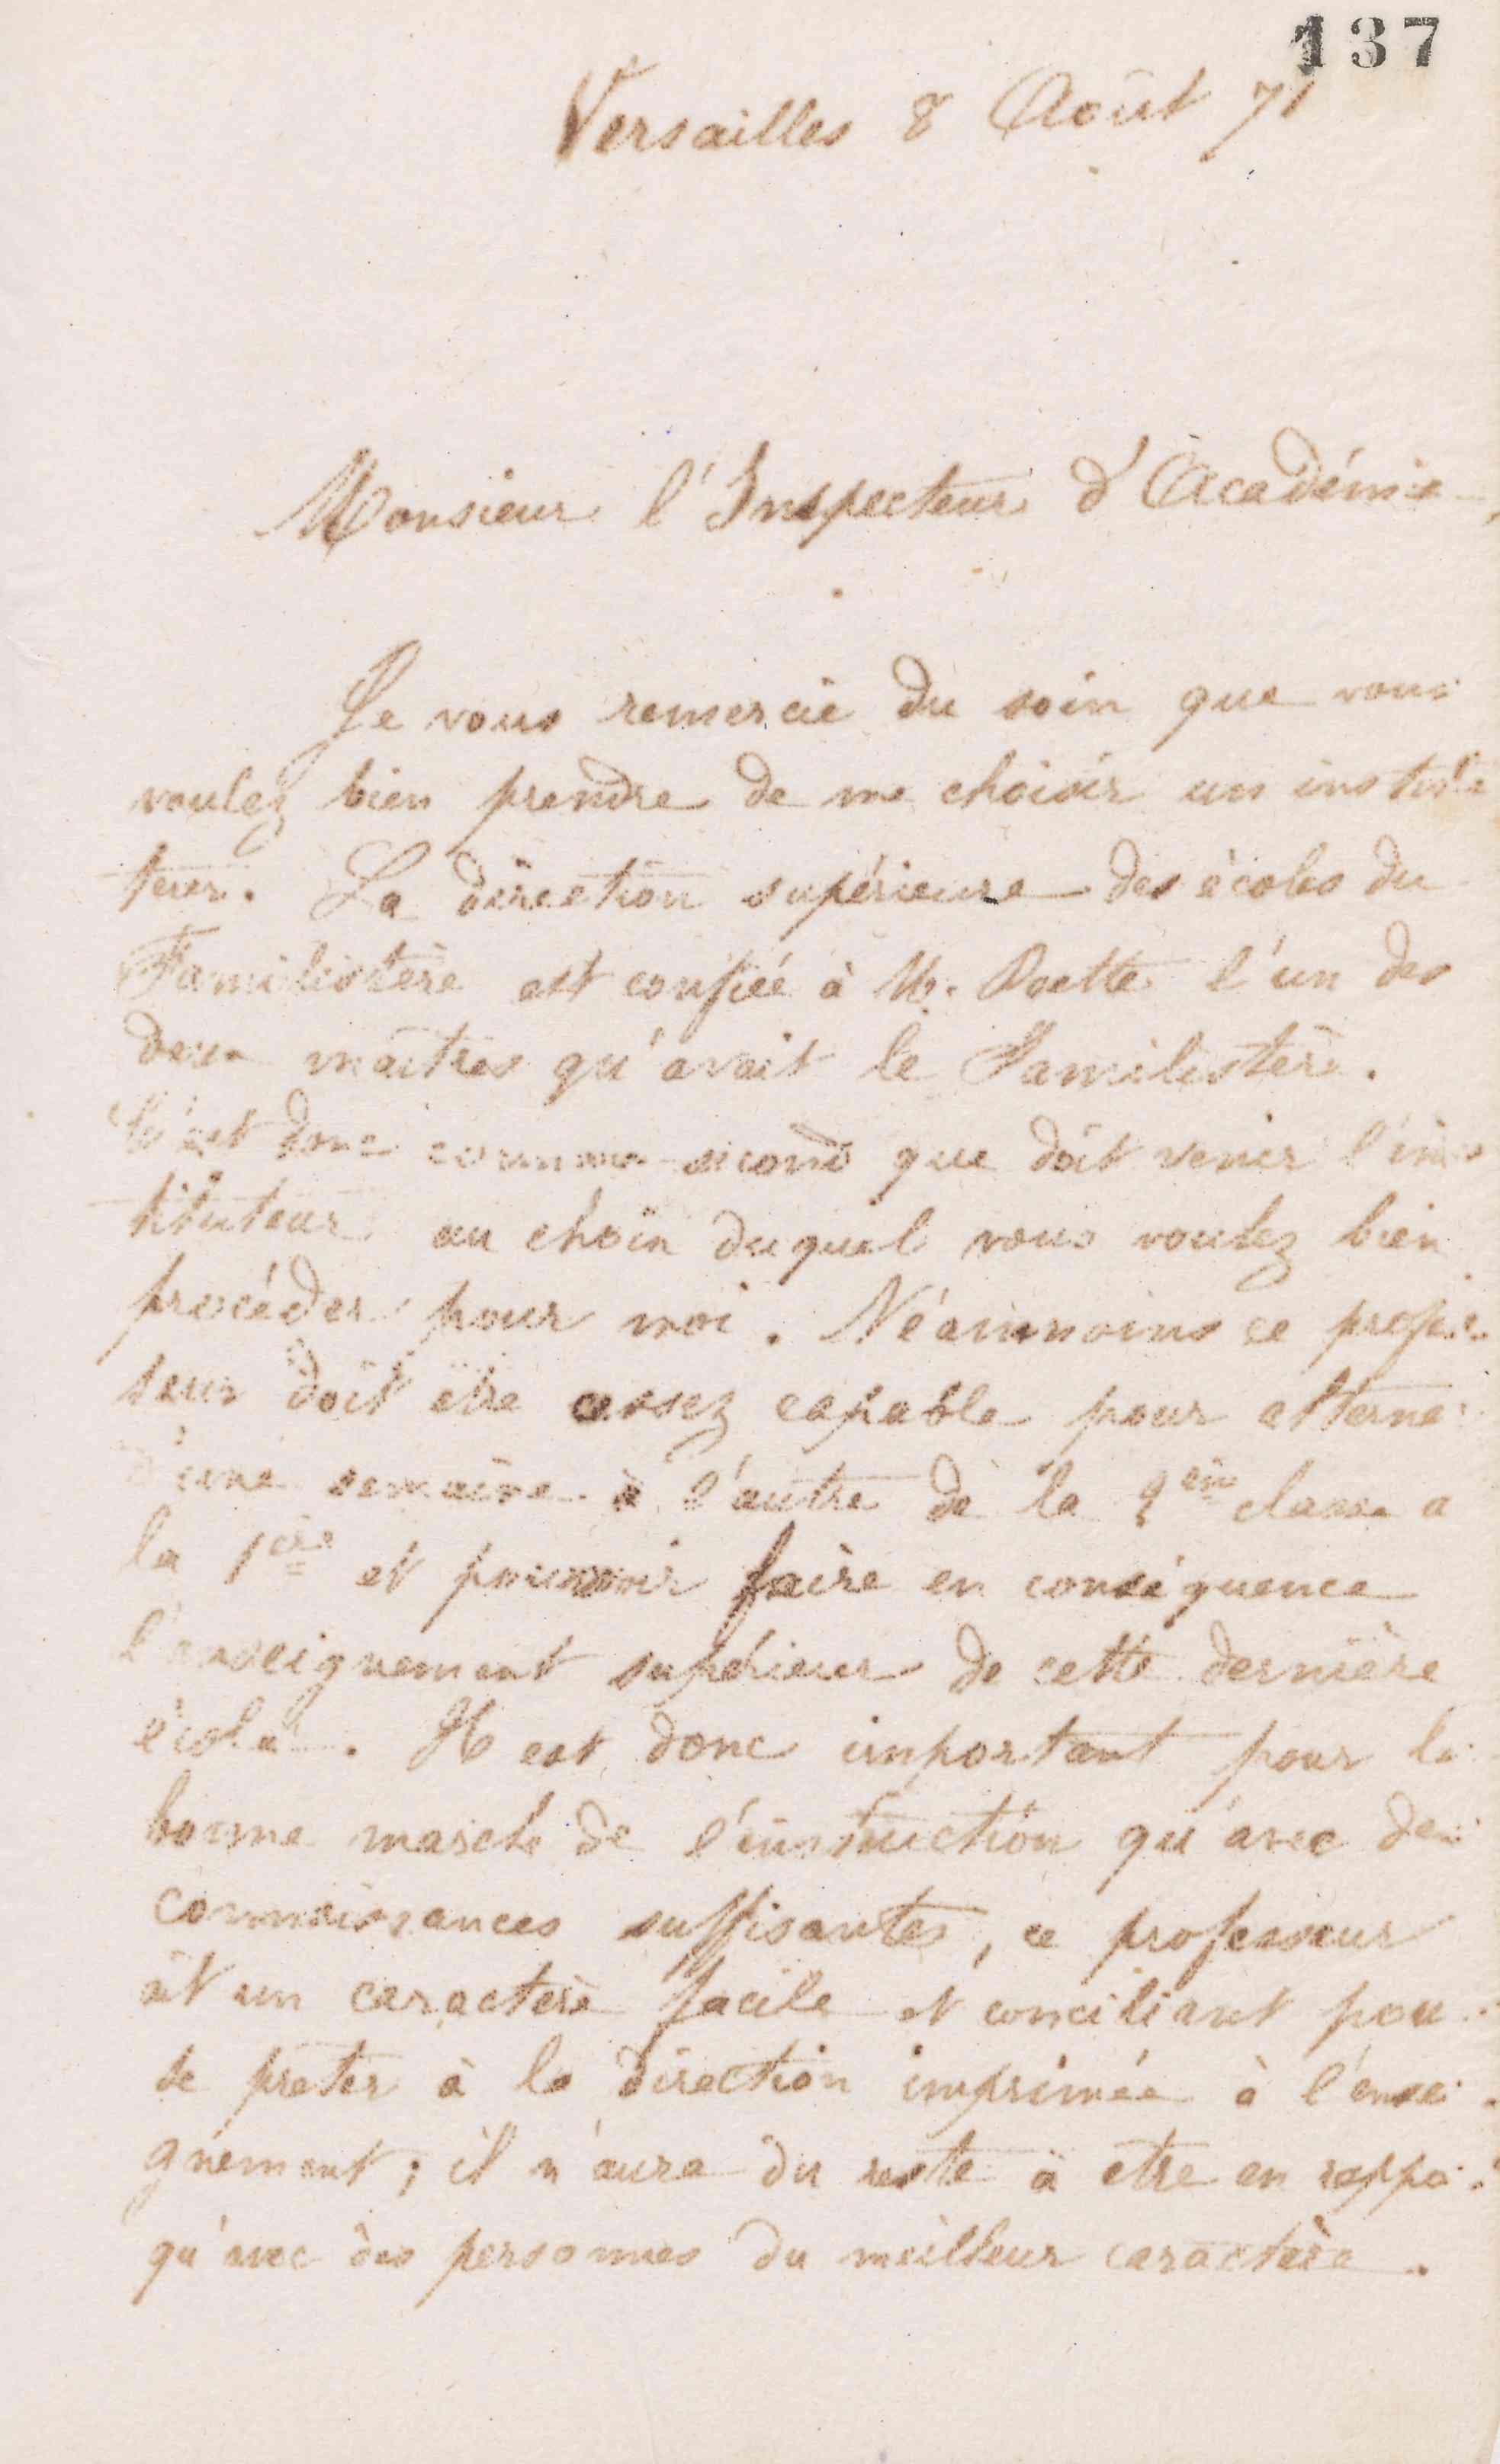 137
Versailles 8 Août 71
Monsieur l'Inspecteur d'Académie,
Je vous remercie du soin que vous
voulez bien prendre de me choisir un institu
teur. La direction supérieure des écoles du
Familistère est confiée à M. Doette l'un des
deux maîtres qu'avait le Familistère.
C'est donc comme second que doit venir l'ins
tituteur au choix duquel vous voulez bien
procéder pour moi. Néanmoins ce profes
seur doit être assez capable pour alterner
d'une semaine à l'autre de la 2ème classe a
la 1ère et pouvoir faire en conséquence
l'enseignement supérieur de cette dernière
école. Il est donc important pour la
bonne marche de l'instruction qu'avec des
connaissances suffisantes, ce professeur
ait un caractère facile et conciliant pour
se prêter à la direction imprimée à l'ensei
gnement; il n'aura du reste à être en rappo
qu'avec des personnes du meilleur caractère.